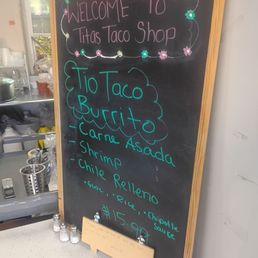 WELCOME TO
Titas Taco Shop
Tio Taco
Burrito
- Carne Asada
- Shrimp
- Chile Relleno
• Rice, • Chipotle
Sauce
$15.90